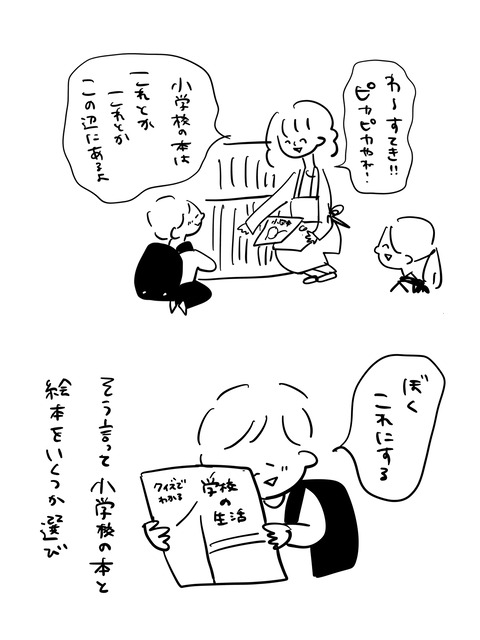 わ〜すてき!!
ピカピカやね!
小学校の本は
これとか
これとか
この辺にあるよ
小学本
ぼく
これにする
クイズで
わかる
学校
の
生活
そう言って小学校の本と
絵本をいくつか選び